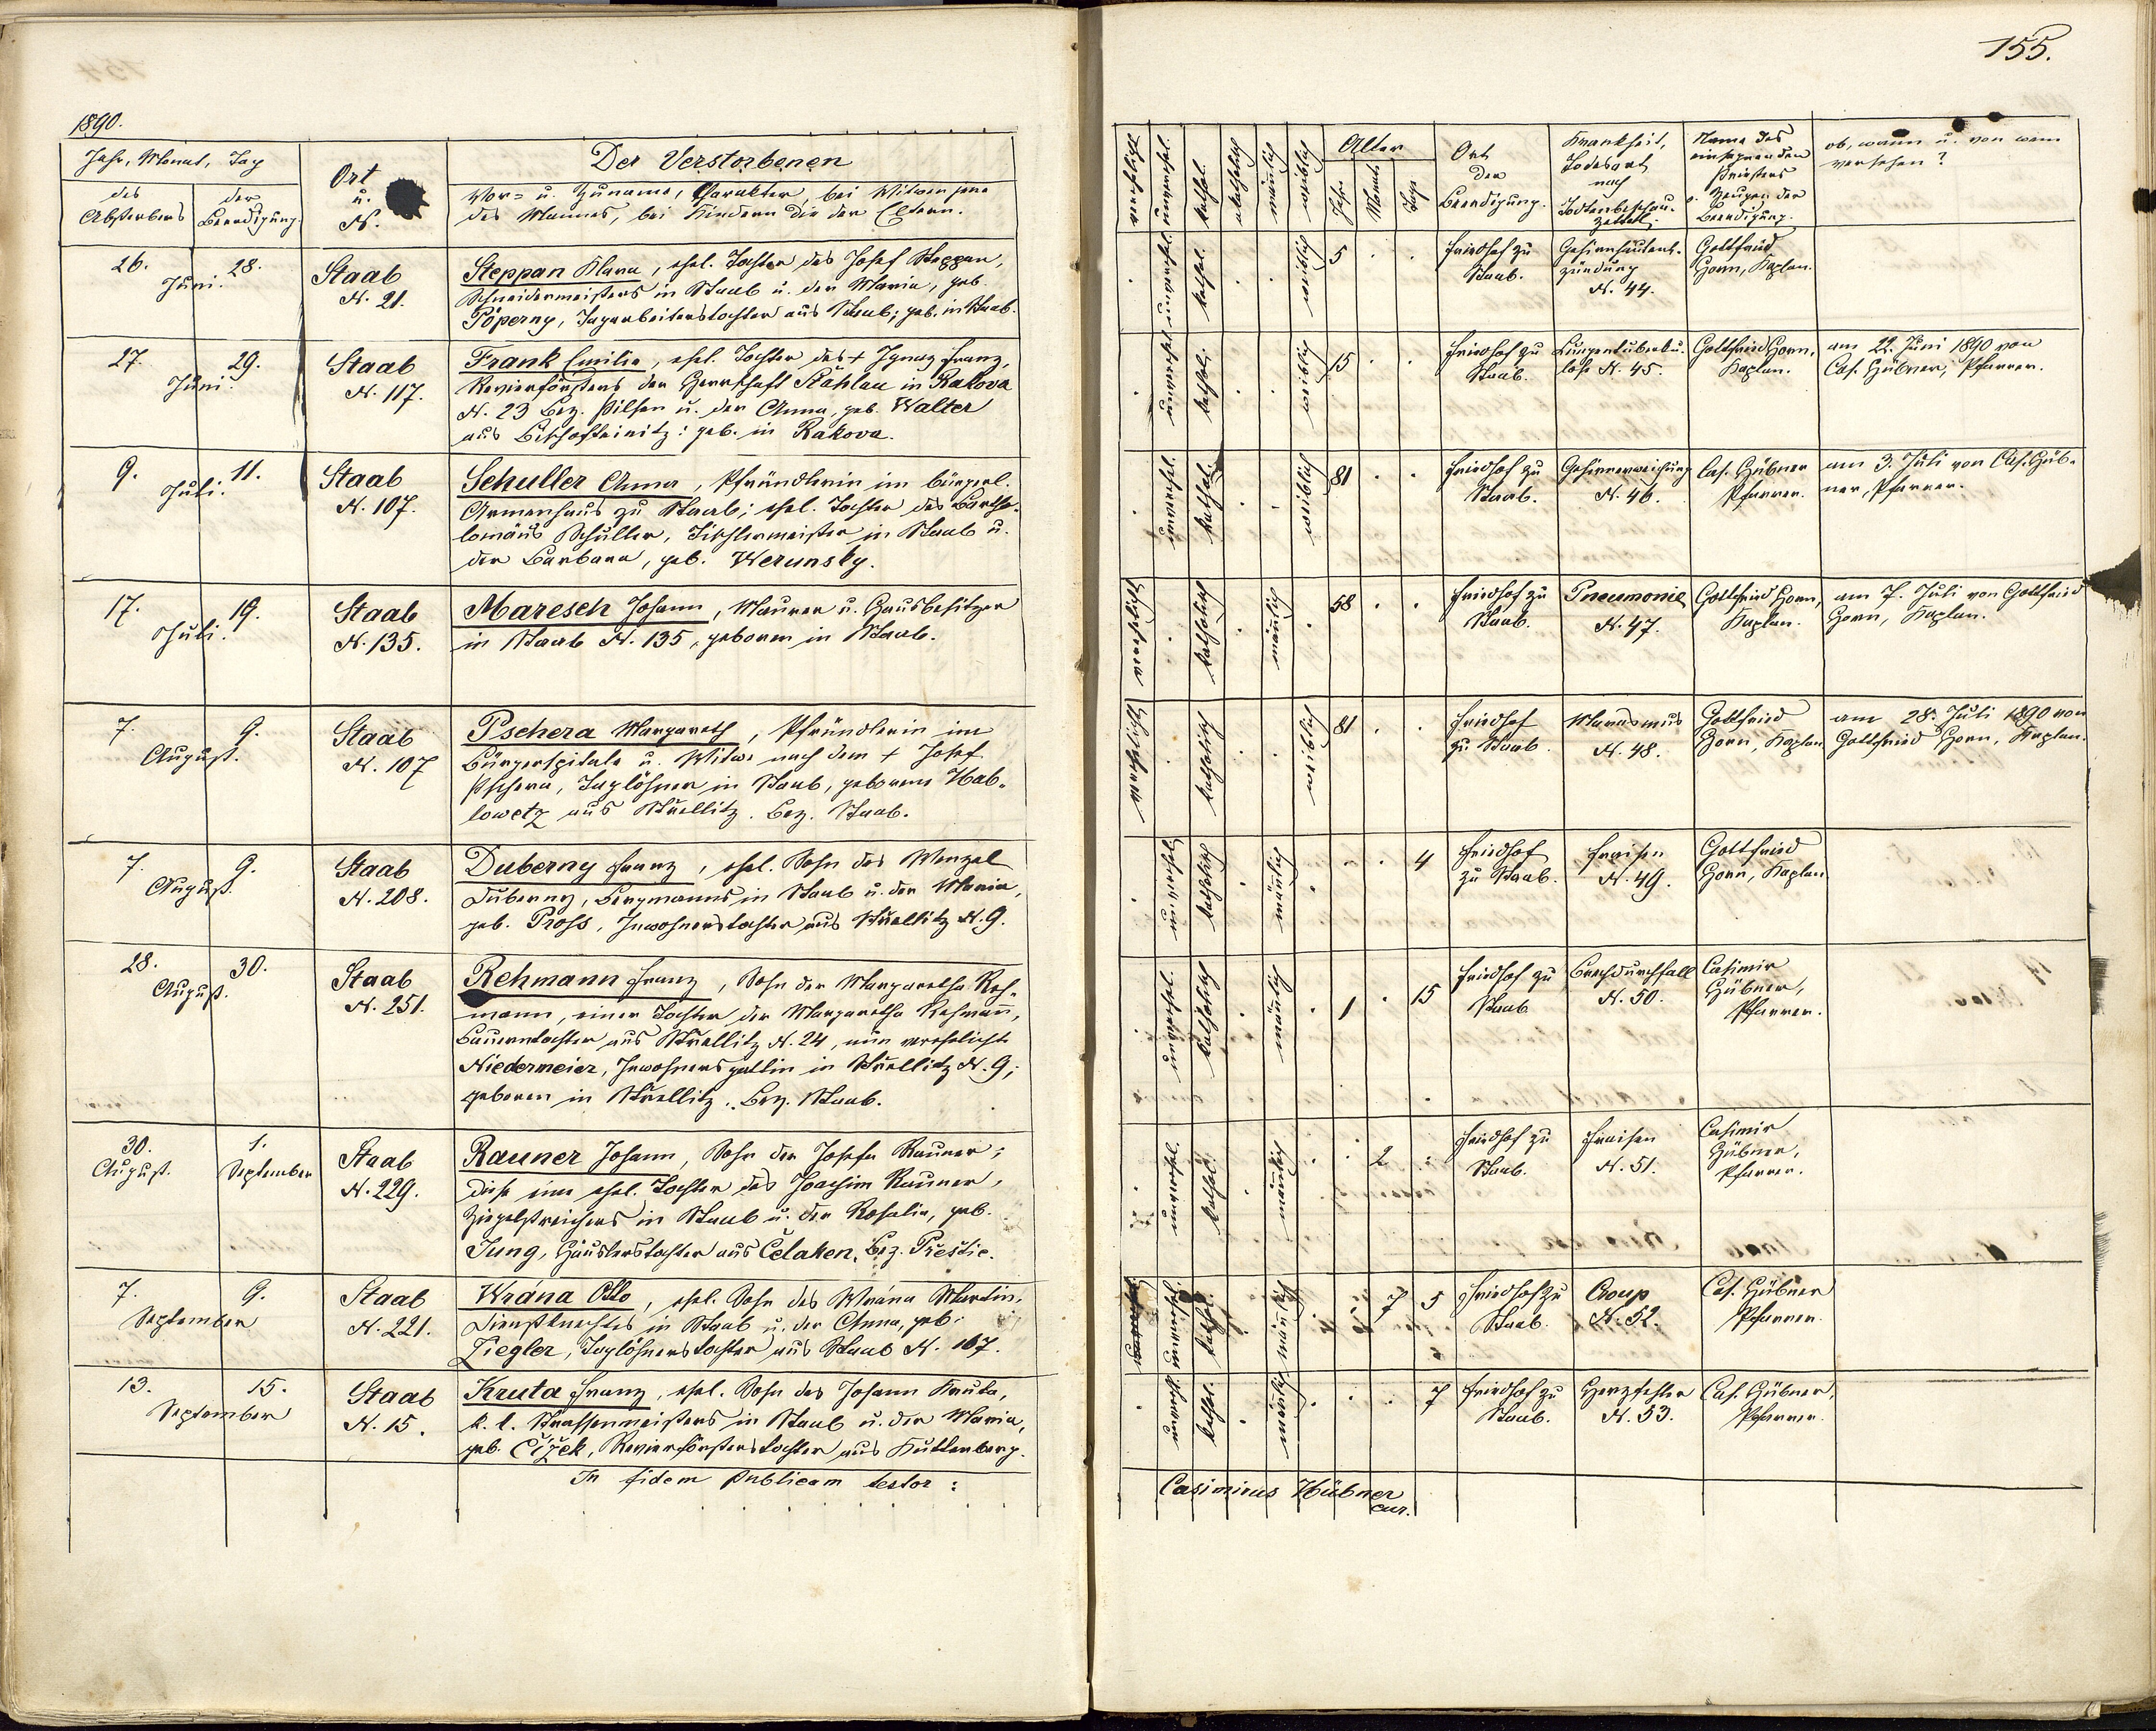 155.
1890.
Jahr, Monat, Tag
des Absterbens
der Beerdigung
Ort u. N.
Der Verstorbenen
Vor- u. Zuname, Charakter, bei Witwen jene
des Mannes, bei Kindern die der Eltern.
verehelicht
unverehel.
kathol.
akatholisch
männlich
weiblich
Alter
Jahr
Monat
Tage
Ort der Beerdigung.
Krankheit, Todesart nach Todtenbeschau-zettel.
Name des einsegnenden Priesters u. Zeugen der Beerdigung.
ob, wann u. von wem versehen?
26. Juni. 28.
Staab N. 21.
Steppan Klara, ehel. Tochter des Josef Steppan,
Schneidermeisters in Staab u. der Maria, geb.
Pöperny, Tagarbeiterstochter aus Staab; geb. in Staab.
kathol. weiblich 5
Friedhof zu Staab.
Gehirnhautent-zündung N. 44.
Gottfried Horn, Kaplan.
27. Juni. 29.
Staab N. 117.
Frank Emilie, ehel. Tochter des + Ignaz Franz,
Revierförsters der Herrschaft Stáhlau in Rakova
N. 23 Bez. Pilsen u. der Anna, geb. Walter
aus Bischofteinitz: geb. in Rakova.
kathol. weiblich 15
Friedhof zu Staab.
Lungentuberku-lose N. 45.
Gottfried Horn, Kaplan.
am 22. Juni 1890 von
Cas. Hübner, Pfarrer.
9. Juli. 11.
Staab N. 107.
Schuller Anna, Pfründlerin im bürgerl.
Armenhaus zu Staab; ehel. Tochter des Bartho-
lomäus Schuller, Tischlermeister in Staab u.
der Barbara, geb. Werunsky.
kathol. weiblich 81
Friedhof zu Staab.
Gehirnerweichung N. 46.
Cas. Hübner Pfarrer.
am 3. Juli von Cas. Hüb-
ner, Pfarrer.
17. Juli. 19.
Staab N. 135.
Maresch Johann, Maurer u. Hausbesitzer
in Staab N. 135, geboren in Staab.
katholisch männlich 58
Friedhof zu Staab.
Pneumonie N. 47.
Gottfried Horn, Kaplan.
am 7. Juli von Gottfried
Horn, Kaplan.
7. August. 9.
Staab N. 107
Pschera Margareth, Pfründlerin im
Bürgerspitale u. Witwe nach dem + Josef
Pschera, Taglöhner in Staab, geborene Hab-
lowetz aus Střellitz. Bez. Staab.
katholisch weiblich 81
Friedhof zu Staab.
Marasmus N. 48.
Gottfried Horn, Kaplan
am 28. Juli 1890 von
Gottfried Horn, Kaplan.
7. August. 9.
Staab N. 208.
Duberny Franz, ehel. Sohn des Wenzel
Duberny, Bergmanns in Staab u. der Maria,
geb. Pross, Inwohnerstochter aus Střellitz N. 9.
katholisch männlich 4
Friedhof zu Staab.
Fraisen N. 49.
Gottfried Horn, Kaplan
28. August. 30.
Staab N. 251.
Rehmann Franz, Sohn der Margaretha Reh-
mann, einer Tochter der Margaretha Rehmann,
Bauerntochter aus Střellitz N. 24, nun verehelicht
Niedermeier, Inwohnersgattin in Střellitz N. 9;
geboren in Střellitz. Bez. Staab.
unverehel. katholisch männlich 1 15
Friedhof zu Staab
Brechdurchfall N. 50.
Casimir Hübner, Pfarrer.
30. August. 1. September
Staab N. 229.
Rauner Johann, Sohn der Josefa Rauner;
diese eine ehel. Tochter des Joachim Rauner,
Ziegelstreichers in Staab u. der Rosalia, geb.
Jung, Häuslerstochter aus Čelaken, Bez. Přeštic.
unverehel. kathol. männlich 2
Friedhof zu Staab.
Fraisen N. 51.
Casimir Hübner, Pfarrer.
7. September 9.
Staab N. 221.
Wrána Otto, ehel. Sohn des Wrána Martin,
Dienstknechtes in Staab u. der Anna, geb.
Ziegler, Taglöhnerstochter aus Staab N. 167.
unverehel. kathol. männlich 7 5
Friedhof zu Staab.
Croup N. 52.
Cas. Hübner Pfarrer.
13. September 15.
Staab N. 15.
Kruta Franz, ehel. Sohn des Johann Kruta,
k. k. Strassenmeisters in Staab u. der Maria,
geb. Čížek, Revierförsterstochter aus Kuttenberg.
unverehl. kathol. männlich 7
Friedhof zu Staab.
Herzfehler N. 53.
Cas. Hübner, Pfarrer.
In fidem publicam testor:
Casimirus Hübner
cur.